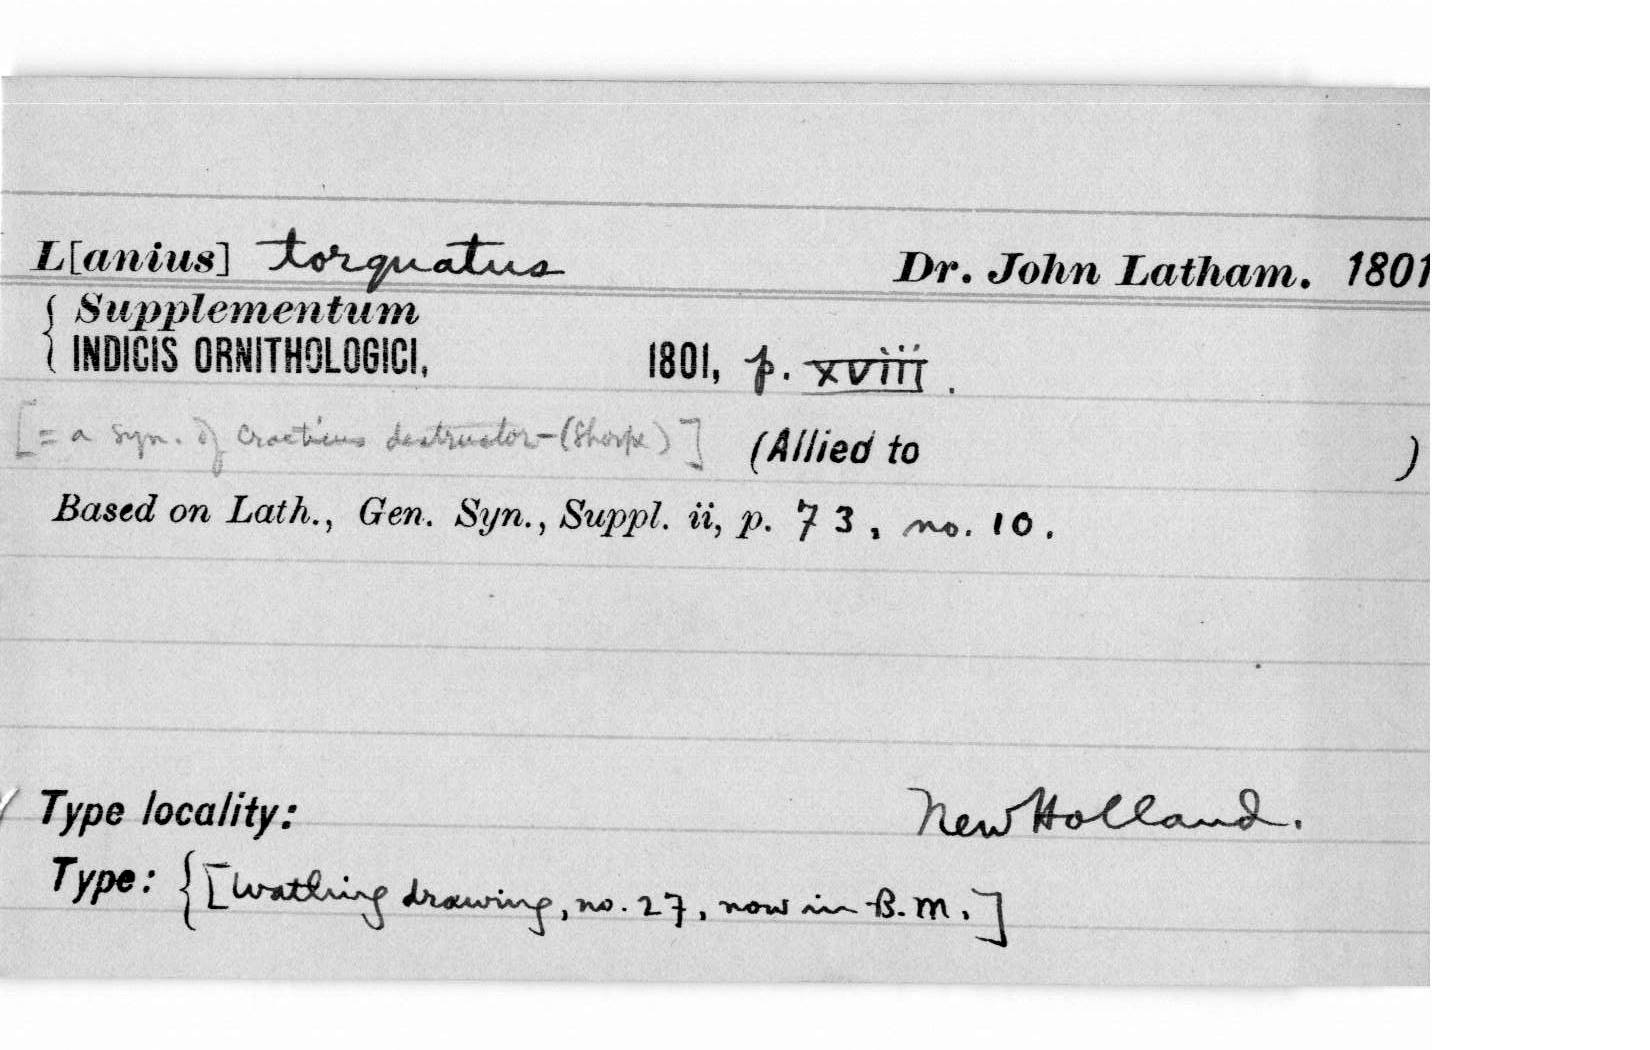 L[anius] torquatus Dr. John Latham. 1801
{ Supplementum
INDICIS ORNITHOLOGICI, 1801, p. xviii.
[= a syn. of Cracticus destructor-(Sharpe)] (Allied to )
Based on Lath., Gen. Syn., Suppl. ii, p. 73, no. 10.
Type locality: New Holland.
Type: {[Watling drawing, no. 27, now in B.M.]